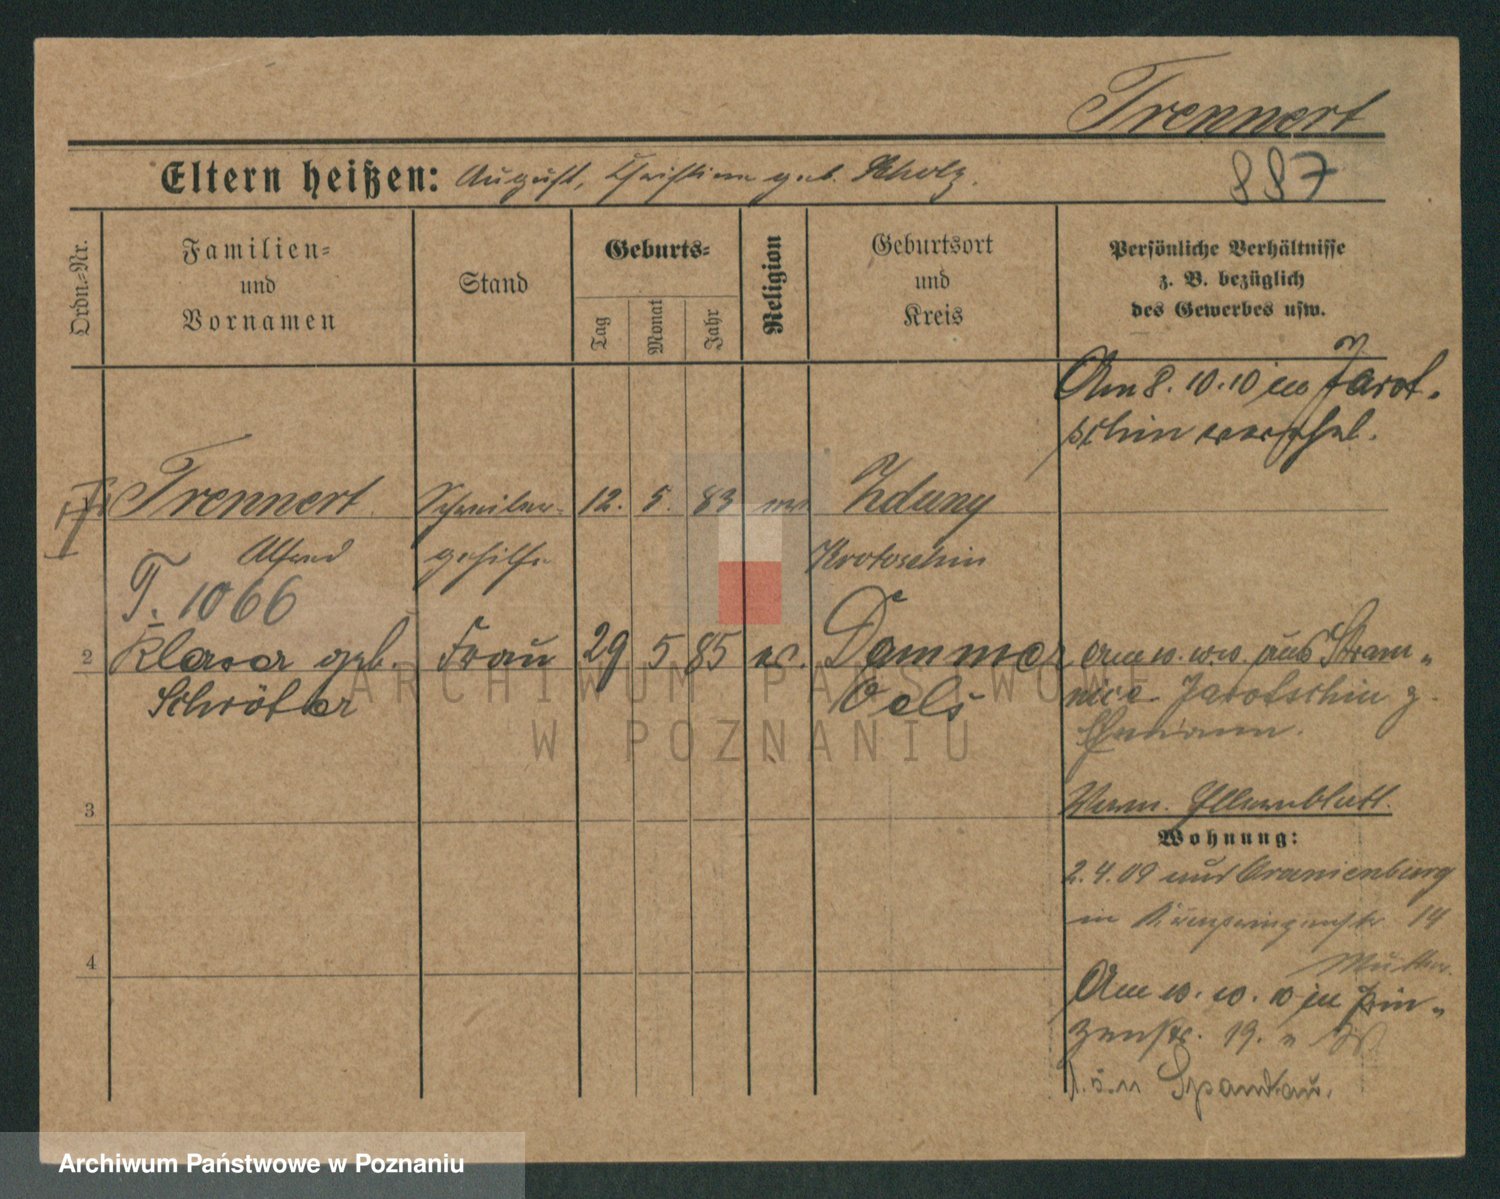 Trennert
Eltern heißen: August, Christiane geb. Scholz.
887
Ordn.=Nr.
Familien=
und
Vornamen
Stand
Geburts=
Tag
Monat
Jahr
Religion
Geburtsort
und
Kreis
Persönliche Verhältnisse
z. B. bezüglich
des Gewerbes usw.
Am 8. 10. 10 in Jarot-
schin
Trennert Schreiber- 12. 5. 83 Zduny
Alfred gehilfe Krotoschin
T. 1066
2 Klara geb. Frau 29 5 85 ev. Dammer
Schröter Oels
am aus
Jarotschin z.
Ehemann.
3
Elternblatt.
Wohnung:
2. 4. 09 aus Oranienburg
in 14
4
Mutter
Am 10. 10. 10 in Prin-
zenstr. 19.
Spandau.
ARCHIWUM PAŃSTWOWE
W POZNANIU
Archiwum Państwowe w Poznaniu